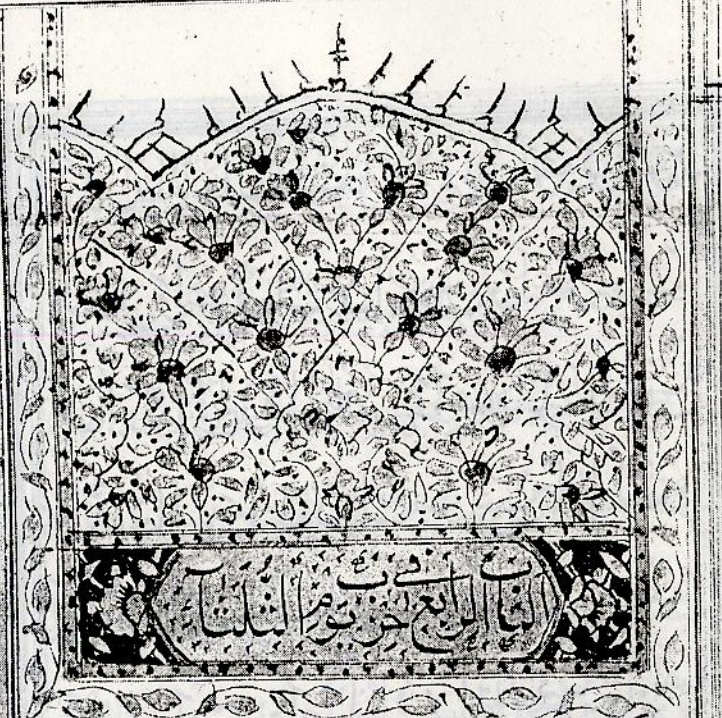 الباب الرابع في حزب يوم الثلثآء